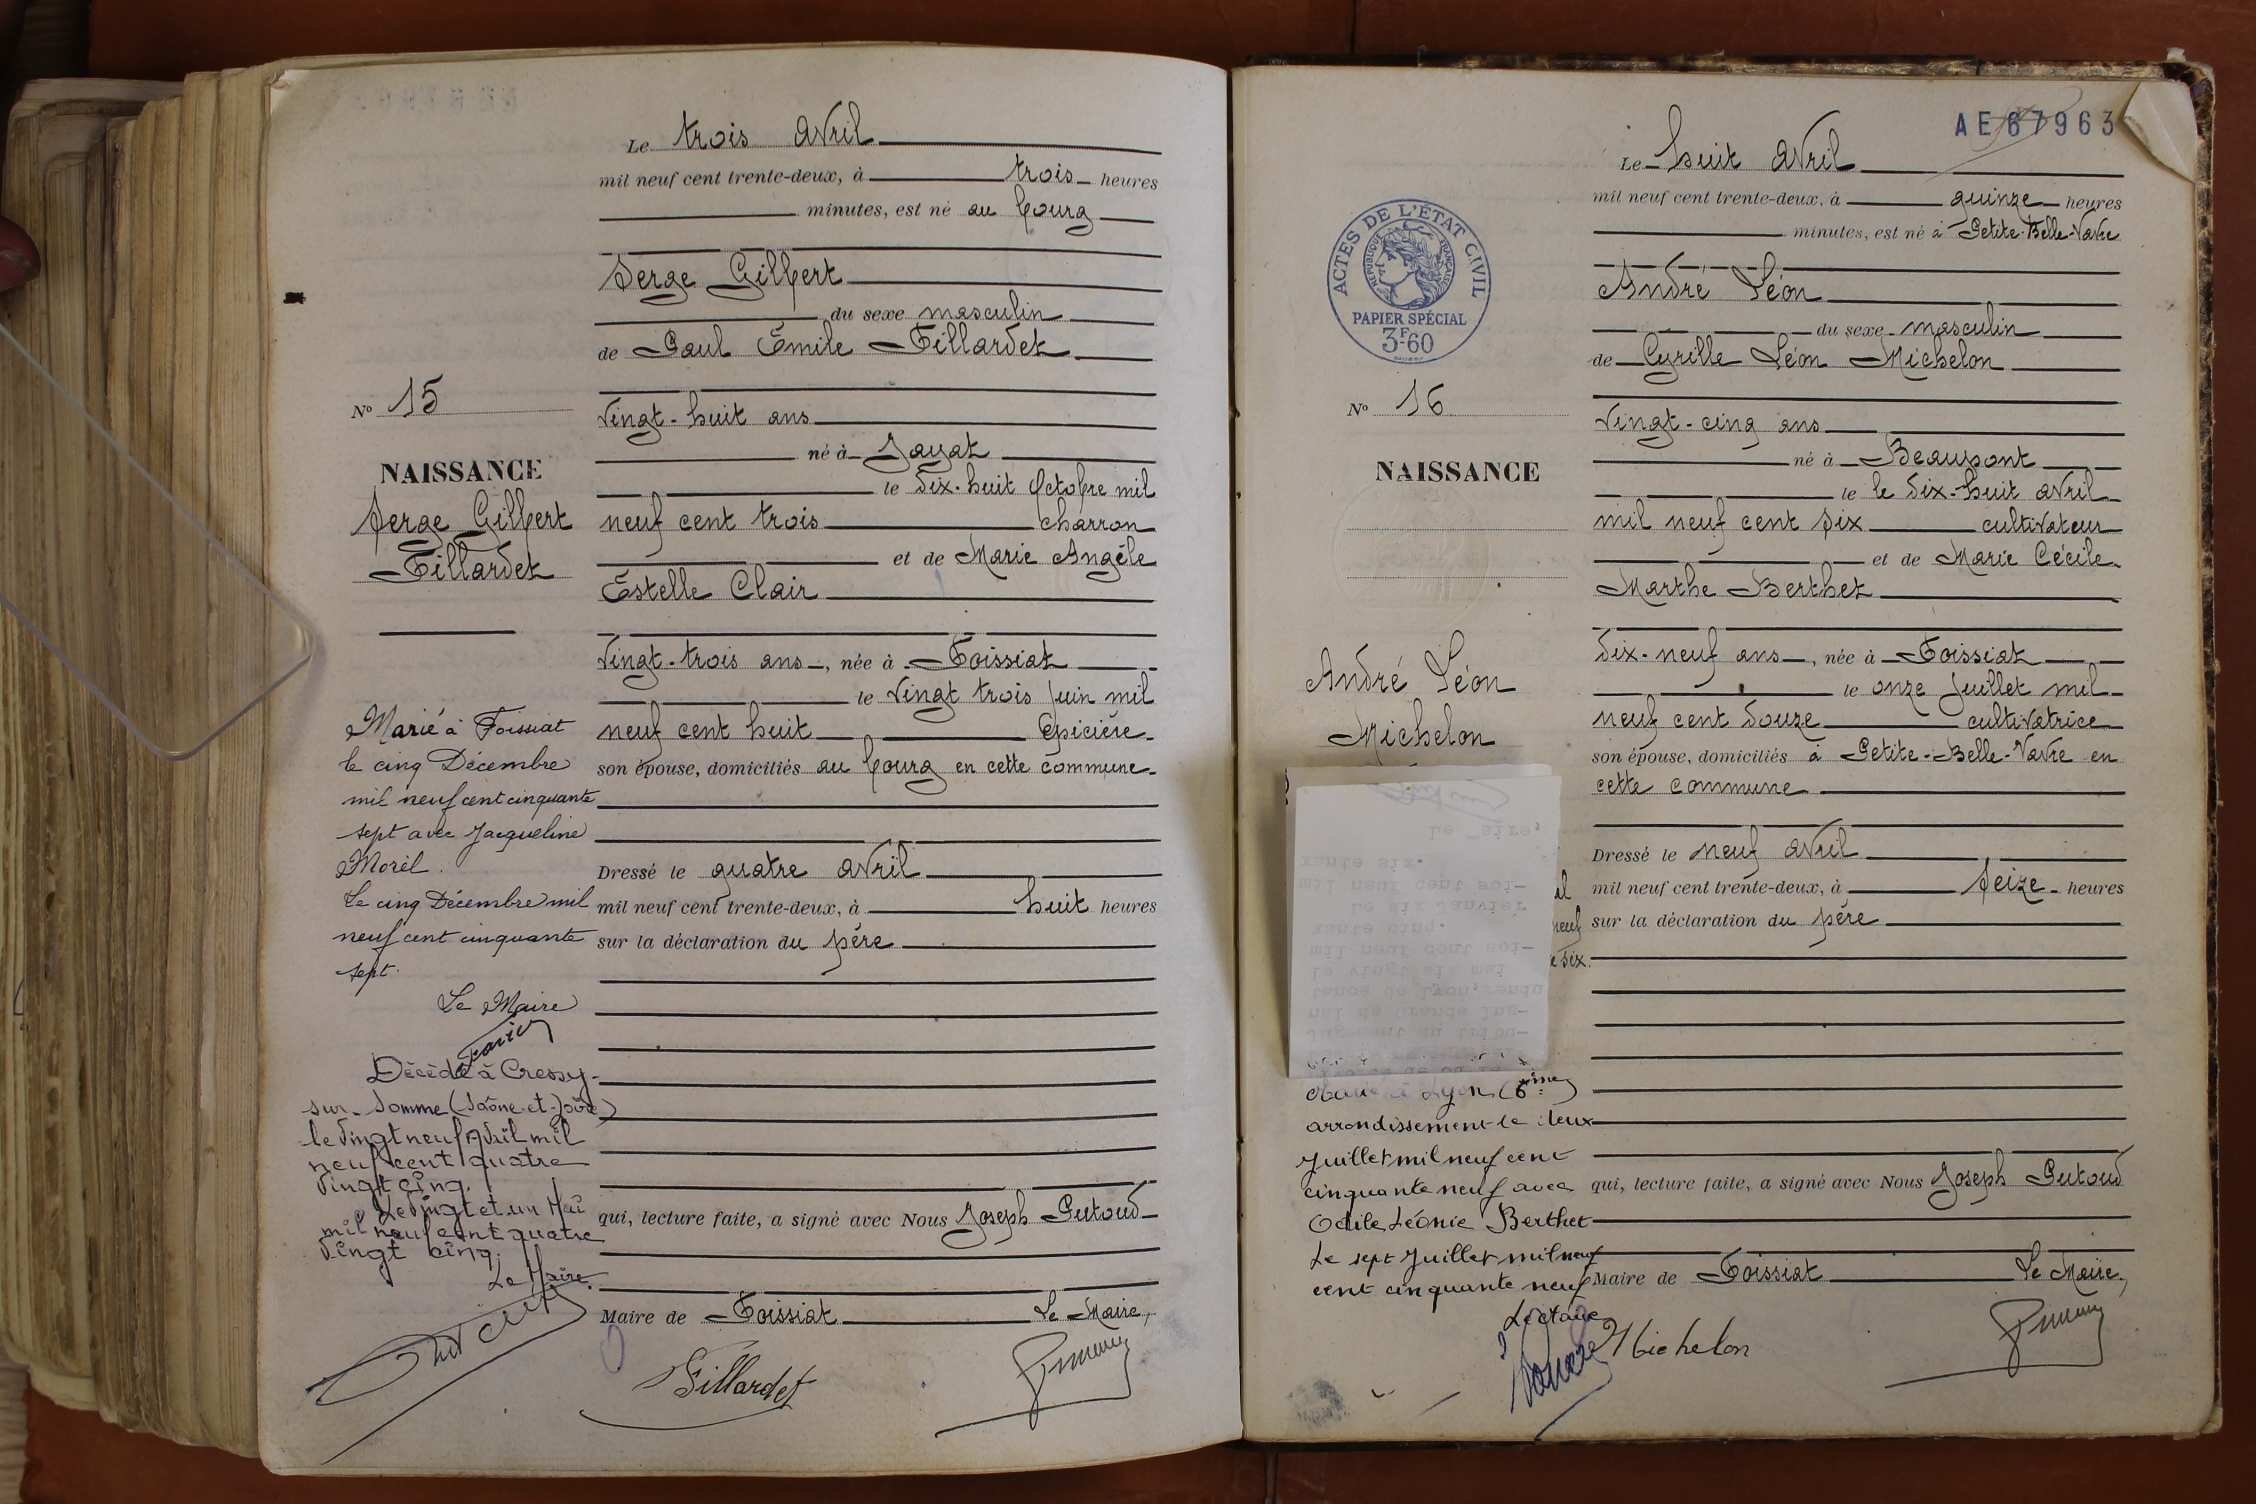 Le trois avril
mil neuf cent trente-deux, à trois heures
minutes, est né au bourg
Serge Gilbert
du sexe masculin
de Paul Émile Tillardet
Vingt-huit ans
né à Jayat
le dix-huit Octobre mil
neuf cent trois charron
et de Marie Angèle
Estelle Clair
Vingt-trois ans, née à Foissiat
le vingt trois juin mil
neuf cent huit épicière
son épouse, domiciliés au bourg en cette commune
Dressé le quatre avril
mil neuf cent trente-deux, à huit heures
sur la déclaration du père
qui, lecture faite, a signé avec Nous Joseph Putoud
Maire de Foissiat Le Maire,
Tillardet
No 15
NAISSANCE
Serge Gilbert
Tillardet
Marié à Foissiat
le cinq Décembre
mil neuf cent cinquante
sept avec Jacqueline
Morel.
Le cinq Décembre mil
neuf cent cinquante
sept.
Le Maire
Décédé à Cressy-
sur-Somme (Saône-et-Loire)
le vingt neuf Avril mil
neuf cent quatre
vingt cinq.
Le vingt et un Mai
mil neuf cent quatre
vingt cinq.
Le Maire.
AE 67963
Le huit avril
mil neuf cent trente-deux, à quinze heures
minutes, est né à Petite-Belle-Vavre
André Léon
du sexe masculin
de Cyrille Léon Michelon
Vingt-cinq ans
né à Beaupont
le le dix-huit avril
mil neuf cent six cultivateur
et de Marie Cécile
Marthe Berthet
dix-neuf ans, née à Foissiat
le onze juillet mil
neuf cent douze cultivatrice
son épouse, domiciliés à Petite-Belle-Vavre en
cette commune
Dressé le neuf avril
mil neuf cent trente-deux, à seize heures
sur la déclaration du père
qui, lecture faite, a signé avec Nous Joseph Putoud
Maire de Foissiat Le Maire,
Michelon
ACTES DE L'ÉTAT CIVIL
RÉPUBLIQUE FRANÇAISE
PAPIER SPÉCIAL
3F60
No 16
NAISSANCE
André Léon
Michelon
Le Maire,
xante six.
mil neuf cent soi-
Le six Janvier
xante cinq.
mil neuf cent soi-
le vingt six mai
tance de Lyon, rendu
nal de Grande Ins-
jugement du tribu-
neuf
e six.
Lyon (6ème)
arrondissement le deux
Juillet mil neuf cent
cinquante neuf avec
Odile Léonie Berthet
Le sept Juillet mil neuf
cent cinquante neuf